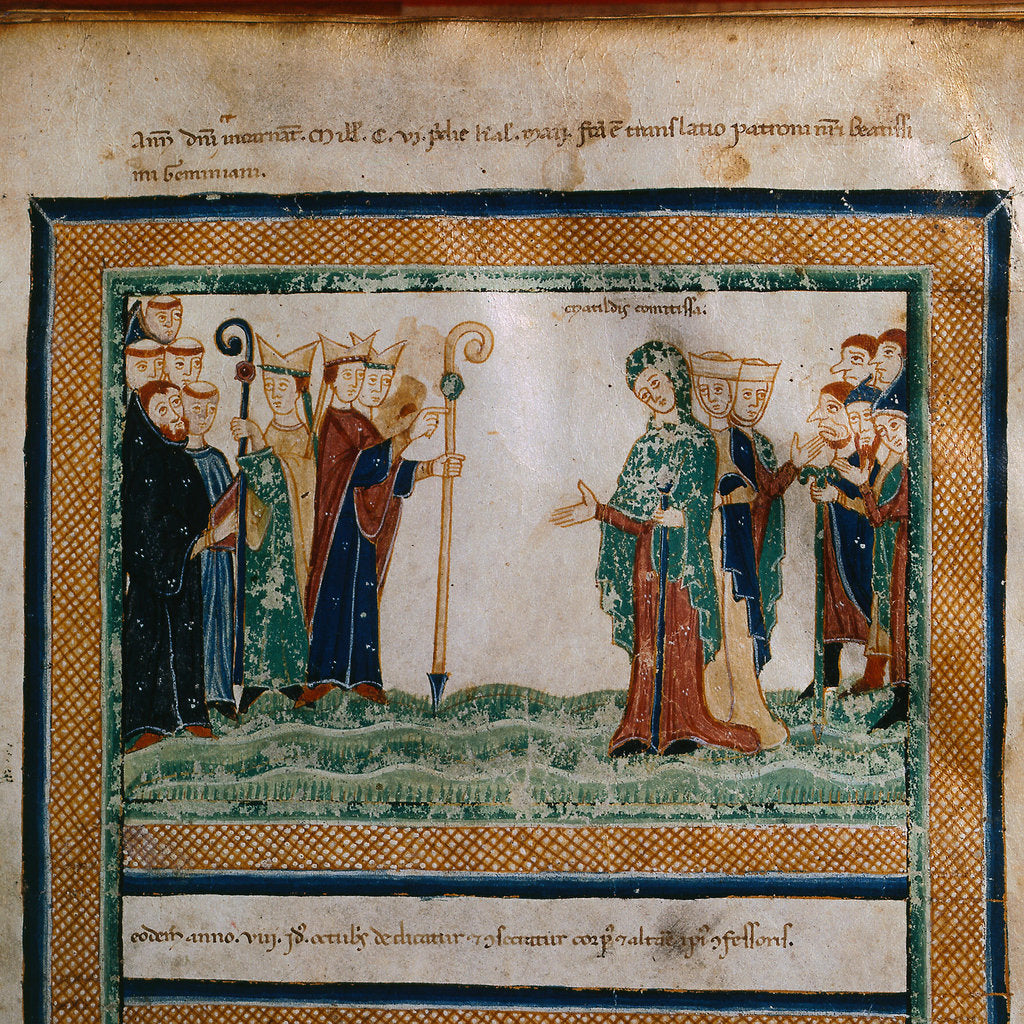 Ann̄ dn̄i incarnat̄. Mill̄. C. vi. pͥdie kal̄. maij. fca ē translatio patroni nr̄i beatissi
mi Geminiani.
Matildis comitissa.
eodem anno. viii. id̄. octubꝫ dedicatur ⁊ ꝯsecratur corpꝰ ⁊ altare ip̄i ꝯfessoris.